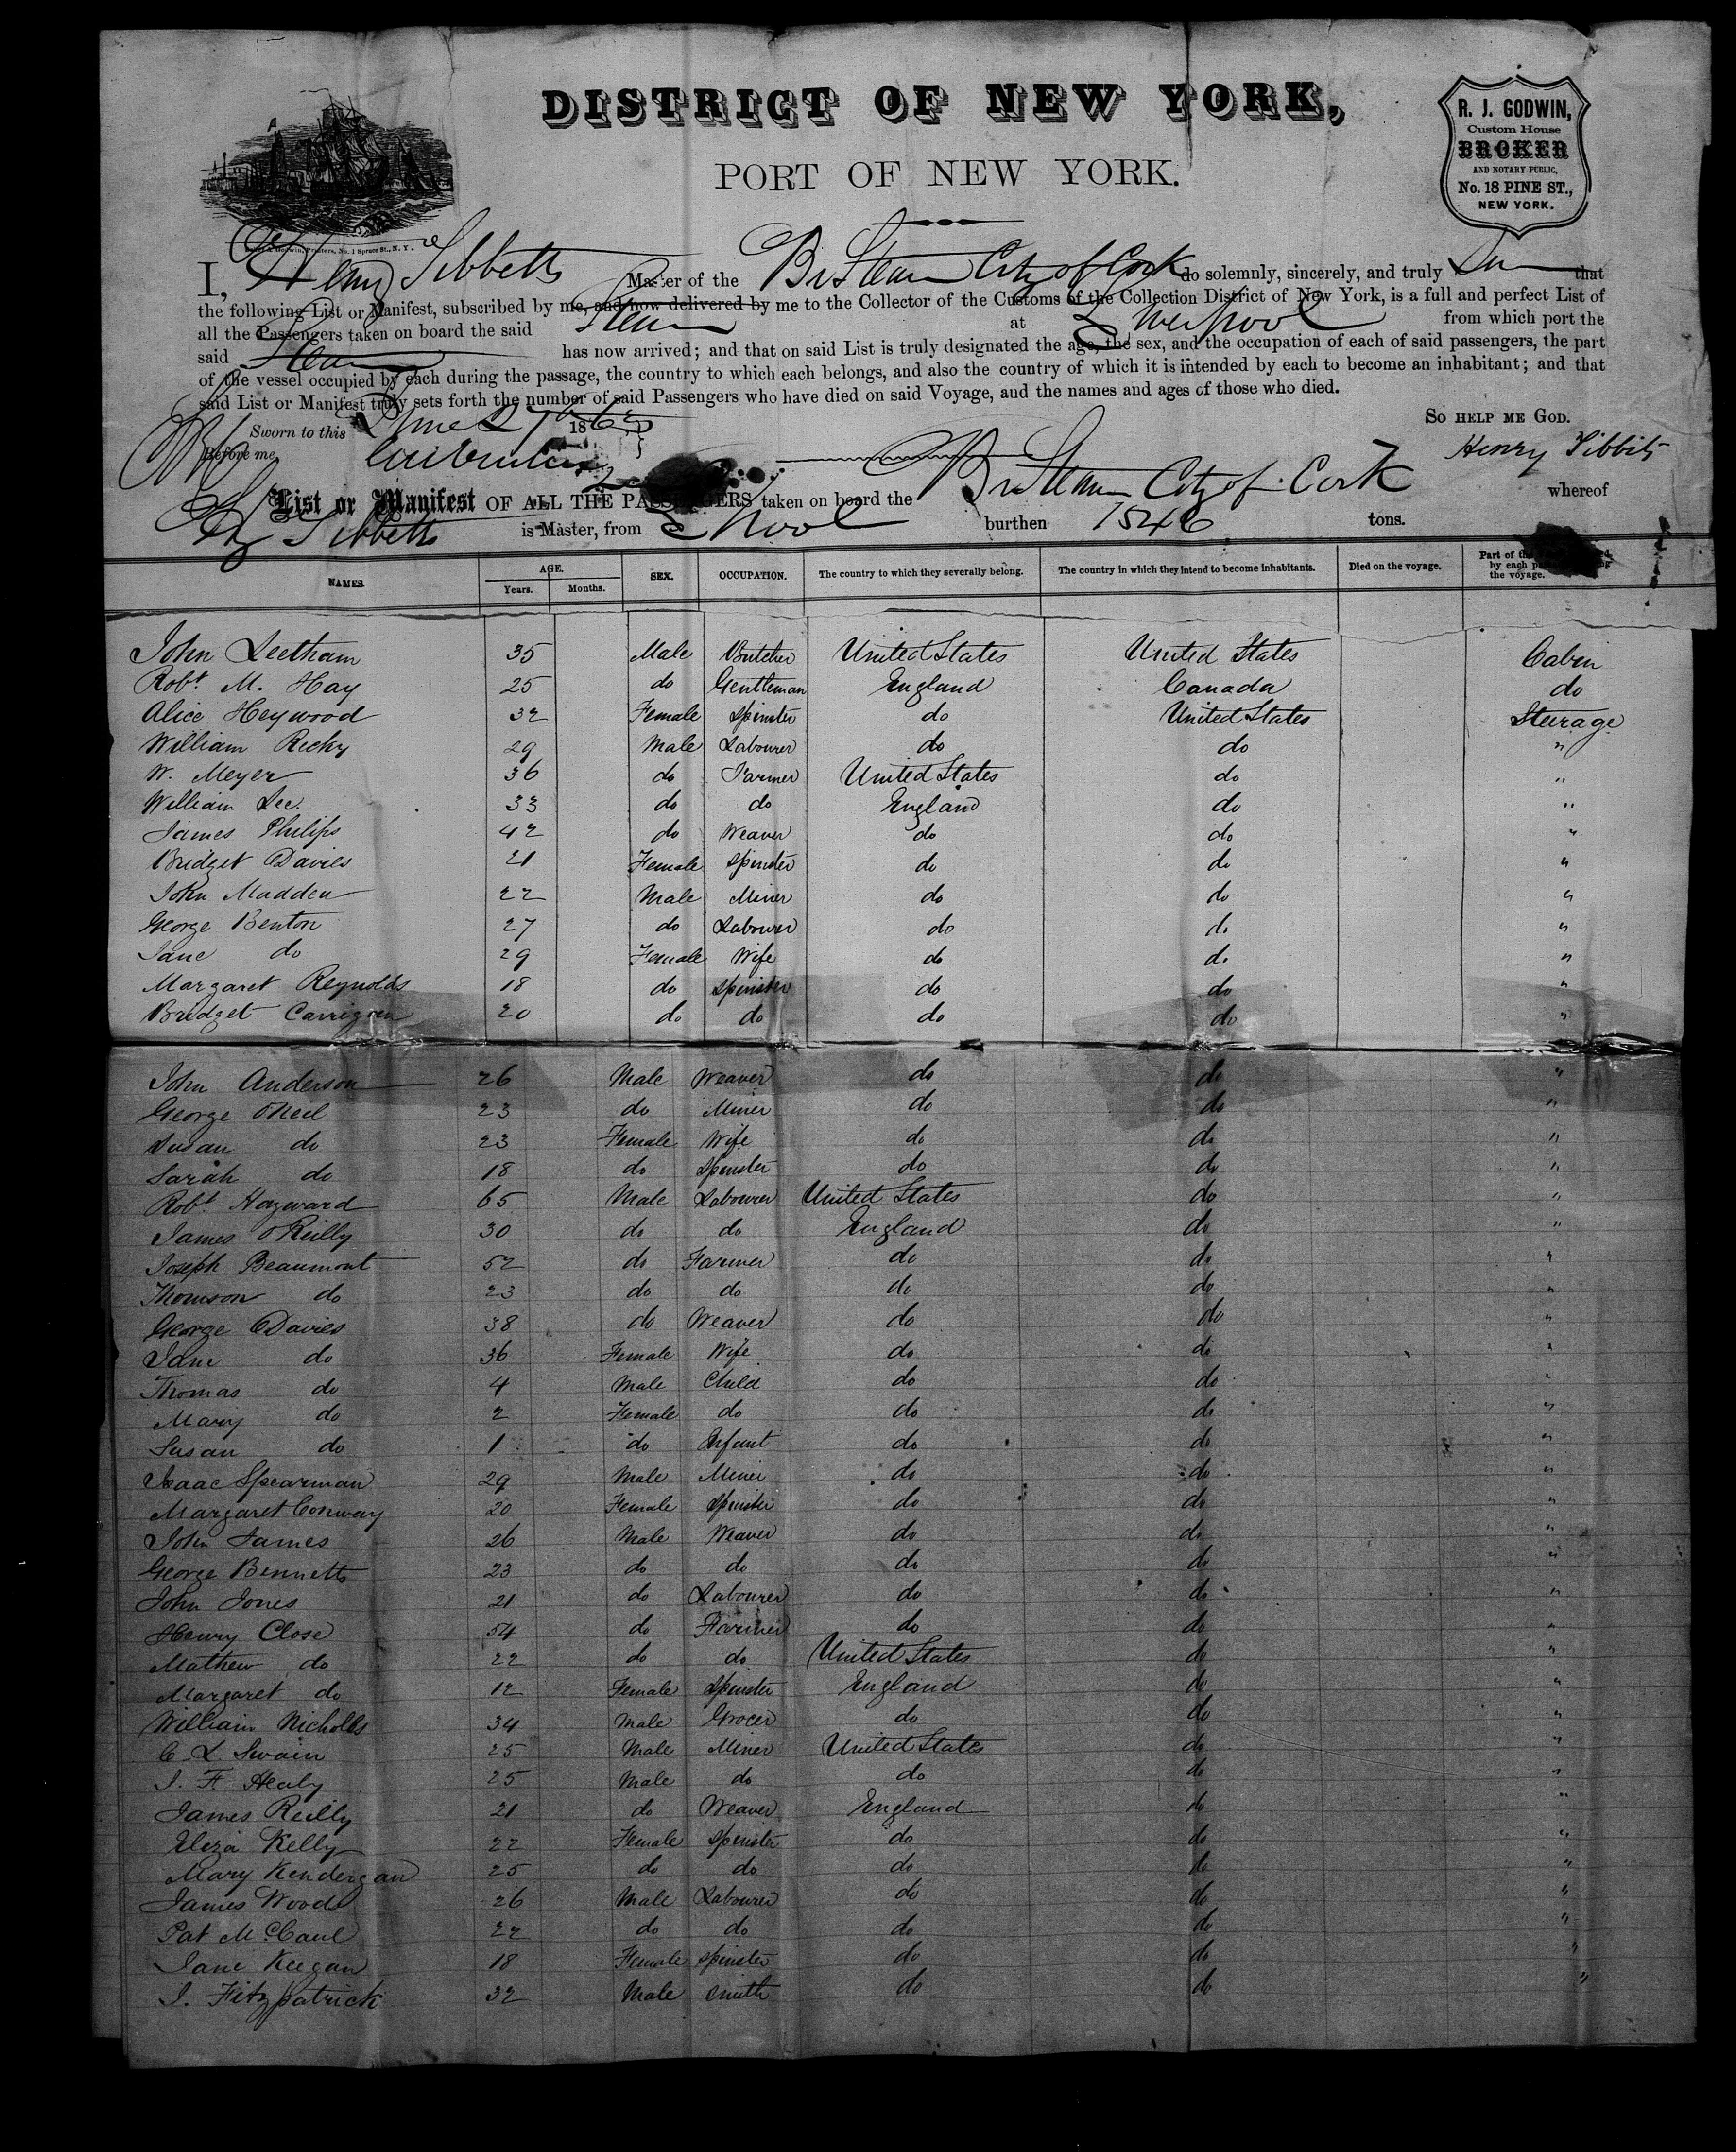 DISTRICT OF NEW YORK,
PORT OF NEW YORK.
R. J. GODWIN,
Custom House
BROKER
AND NOTARY PUBLIC,
No. 18 PINE ST.,
NEW YORK.
Godwin, Printers, No. 1 Spruce St., N. Y.
I, Henry Tibbetts Master of the Br Steam City of Cork do solemnly, sincerely, and truly that
the following List or Manifest, subscribed by me, and now delivered by me to the Collector of the Customs of the Collection District of New York, is a full and perfect List of
all the Passengers taken on board the said Steam at Liverpool from which port the
said Steam has now arrived; and that on said List is truly designated the age, the sex, and the occupation of each of said passengers, the part
of the vessel occupied by each during the passage, the country to which each belongs, and also the country of which it is intended by each to become an inhabitant; and that
said List or Manifest truly sets forth the number of said Passengers who have died on said Voyage, and the names and ages of those who died.
So HELP ME GOD.
Sworn to this June 27 186
Before me, Henry Tibbits
List or Manifest OF ALL THE PASSENGERS taken on board the Br Steam City of Cork whereof
Hy Tibbetts is Master, from L'pool burthen 1546 tons.
NAMES. AGE. Years. Months. SEX. OCCUPATION. The country to which they severally belong. The country in which they intend to become inhabitants. Died on the voyage. Part of the by each the voyage.
John Leetham 35 Male Butcher United States United States Cabin
Robt. M. Hay 25 do Gentleman England Canada do
Alice Heywood 32 Female Spinster do United States Steerage
William Ricky 29 Male Labourer do do "
W. Meyer 36 do Farmer United States do "
William Lee. 33 do do England do "
James Philips 42 do Weaver do do "
Bridget Davies 21 Female Spinster do do "
John Madden 22 Male Miner do do "
George Benton 27 do Labourer do do "
Jane do 29 Female Wife do do "
Margaret Reynolds 18 do Spinster do do "
Bridget Carrigan 20 do do do do "
John Anderson 26 Male Weaver do do "
George ONeil 23 do Miner do do "
Susan do 23 Female Wife do do "
Sarah do 18 do Spinster do do "
Robt. Hayward 65 Male Labourer United States do "
James OReilly 30 do do England do "
Joseph Beaumont 52 do Farmer do do "
Thomson do 23 do do do do "
George Davies 38 do Weaver do do "
Jane do 36 Female Wife do do "
Thomas do 4 Male Child do do "
Mary do 2 Female do do do "
Susan do 1 do Infant do do "
Isaac Spearman 29 Male Miner do do "
Margaret Conway 20 Female Spinster do do "
John James 26 Male Weaver do do "
George Bennetts 23 do do do do "
John Jones 21 do Labourer do do "
Henry Close 54 do Farmer do do "
Mathew do 22 do do United States do "
Margaret do 12 Female Spinster England do "
William Nicholls 34 Male Grocer do do "
C. L. Swain 25 Male Miner United States do "
J. F. Healy 25 Male do do do "
James Reilly 21 do Weaver England do "
Eliza Kelly 22 Female Spinster do do "
Mary Kendergan 25 do do do do "
James Woods 26 Male Labourer do do "
Pat McCaul 22 do do do do "
Jane Keegan 18 Female Spinster do do "
J. Fitzpatrick 32 Male Smith do do "